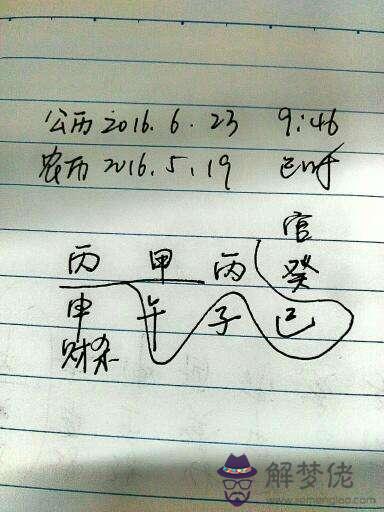 公历 2016.6.23 9:46
农历 2016.5.19 巳时
官
丙 甲 丙 癸
申 午 子 巳
财杀
解梦佬